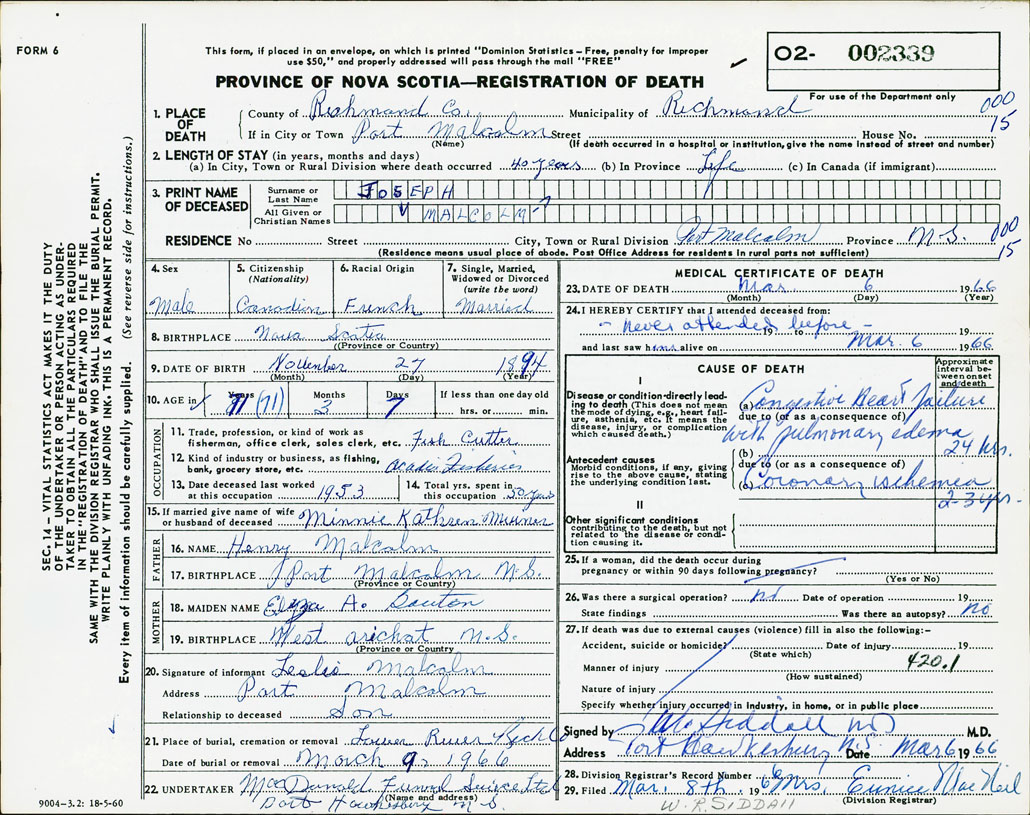 FORM 6
This form, if placed in an envelope, on which is printed "Dominion Statistics – Free, penalty for improper
use $50," and properly addressed will pass through the mail "FREE"
O2- 002339
For use of the Department only
PROVINCE OF NOVA SCOTIA—REGISTRATION OF DEATH
000
15
1. PLACE OF DEATH
County of Richmond Co. Municipality of Richmond
If in City or Town Port Malcolm Street House No.
(Name) (If death occurred in a hospital or institution, give the name instead of street and number)
2. LENGTH OF STAY (in years, months and days)
(a) In City, Town or Rural Division where death occurred 40 years (b) In Province Life (c) In Canada (if immigrant)
3. PRINT NAME OF DECEASED
Surname or Last Name JOSEPH
All Given or Christian Names MALCOLM
RESIDENCE No Street City, Town or Rural Division Port Malcolm Province N.S.
(Residence means usual place of abode. Post Office Address for residents in rural parts not sufficient)
000
15
4. Sex Male
5. Citizenship (Nationality) Canadian
6. Racial Origin French
7. Single, Married, Widowed or Divorced (write the word) Married
8. BIRTHPLACE Nova Scotia
(Province or Country)
9. DATE OF BIRTH November 27 1894
(Month) (Day) (Year)
10. AGE in Years (71) Months 3 Days 7 If less than one day old
hrs. or min.
OCCUPATION
11. Trade, profession, or kind of work as
fisherman, office clerk, sales clerk, etc. Fish Cutter
12. Kind of industry or business, as fishing,
bank, grocery store, etc. Acadia Fisheries
13. Date deceased last worked
at this occupation 1953
14. Total yrs. spent in
this occupation 50 years
15. If married give name of wife
or husband of deceased Minnie Kathren
FATHER
16. NAME Henry Malcolm
17. BIRTHPLACE Port Malcolm N.S.
(Province or Country)
MOTHER
18. MAIDEN NAME Eliza A.
19. BIRTHPLACE West arichat N.S.
(Province or Country)
20. Signature of informant Leslie Malcolm
Address Port Malcolm
Relationship to deceased Son
21. Place of burial, cremation or removal Lower River
Date of burial or removal March 9, 1966
22. UNDERTAKER MacDonald Funeral Service Ltd
(Name and address)
Port Hawkesbury N.S.
MEDICAL CERTIFICATE OF DEATH
23. DATE OF DEATH Mar. 6 1966
(Month) (Day) (Year)
24. I HEREBY CERTIFY that I attended deceased from:
- never attended before -
19 to 19
and last saw him alive on Mar. 6 1966
CAUSE OF DEATH
Approximate interval between onset and/death
I
Disease or condition directly leading to death (This does not mean the mode of dying, e.g., heart failure, asthenia, etc. It means the disease, injury, or complication which caused death.)
(a) Congestive Heart failure
due to (or as a consequence of)
with pulmonary edema 24 hrs.
Antecedent causes
Morbid conditions, if any, giving rise to the above cause, stating the underlying condition last.
(b)
due to (or as a consequence of)
(c) Coronary ischemia
2-3 yrs.
II
Other significant conditions
contributing to the death, but not related to the disease or condition causing it.
25. If a woman, did the death occur during
pregnancy or within 90 days following pregnancy?
(Yes or No)
26. Was there a surgical operation? no Date of operation 19
State findings Was there an autopsy? no
27. If death was due to external causes (violence) fill in also the following:–
Accident, suicide or homicide? Date of injury 19
(State which)
Manner of injury 420.1
(How sustained)
Nature of injury
Specify whether injury occurred in industry, in home, or in public place
Signed by Siddall MD M.D.
Address Port Hawkesbury N.S. Date Mar 6 1966
28. Division Registrar's Record Number 6
29. Filed Mar. 8th. 19 Mrs. Eunice MacNeil
(Division Registrar)
W.R. SIDDALL
SEC. 14 – VITAL STATISTICS ACT MAKES IT THE DUTY
OF THE UNDERTAKER OR PERSON ACTING AS UNDER-
TAKER TO OBTAIN ALL THE PARTICULARS REQUIRED
IN THE "REGISTRATION OF DEATH" AND TO FILE THE
SAME WITH THE DIVISION REGISTRAR WHO SHALL ISSUE THE BURIAL PERMIT.
WRITE PLAINLY WITH UNFADING INK. THIS IS A PERMANENT RECORD.
Every item of information should be carefully supplied. (See reverse side for instructions.)
9004-3.2: 18-5-60